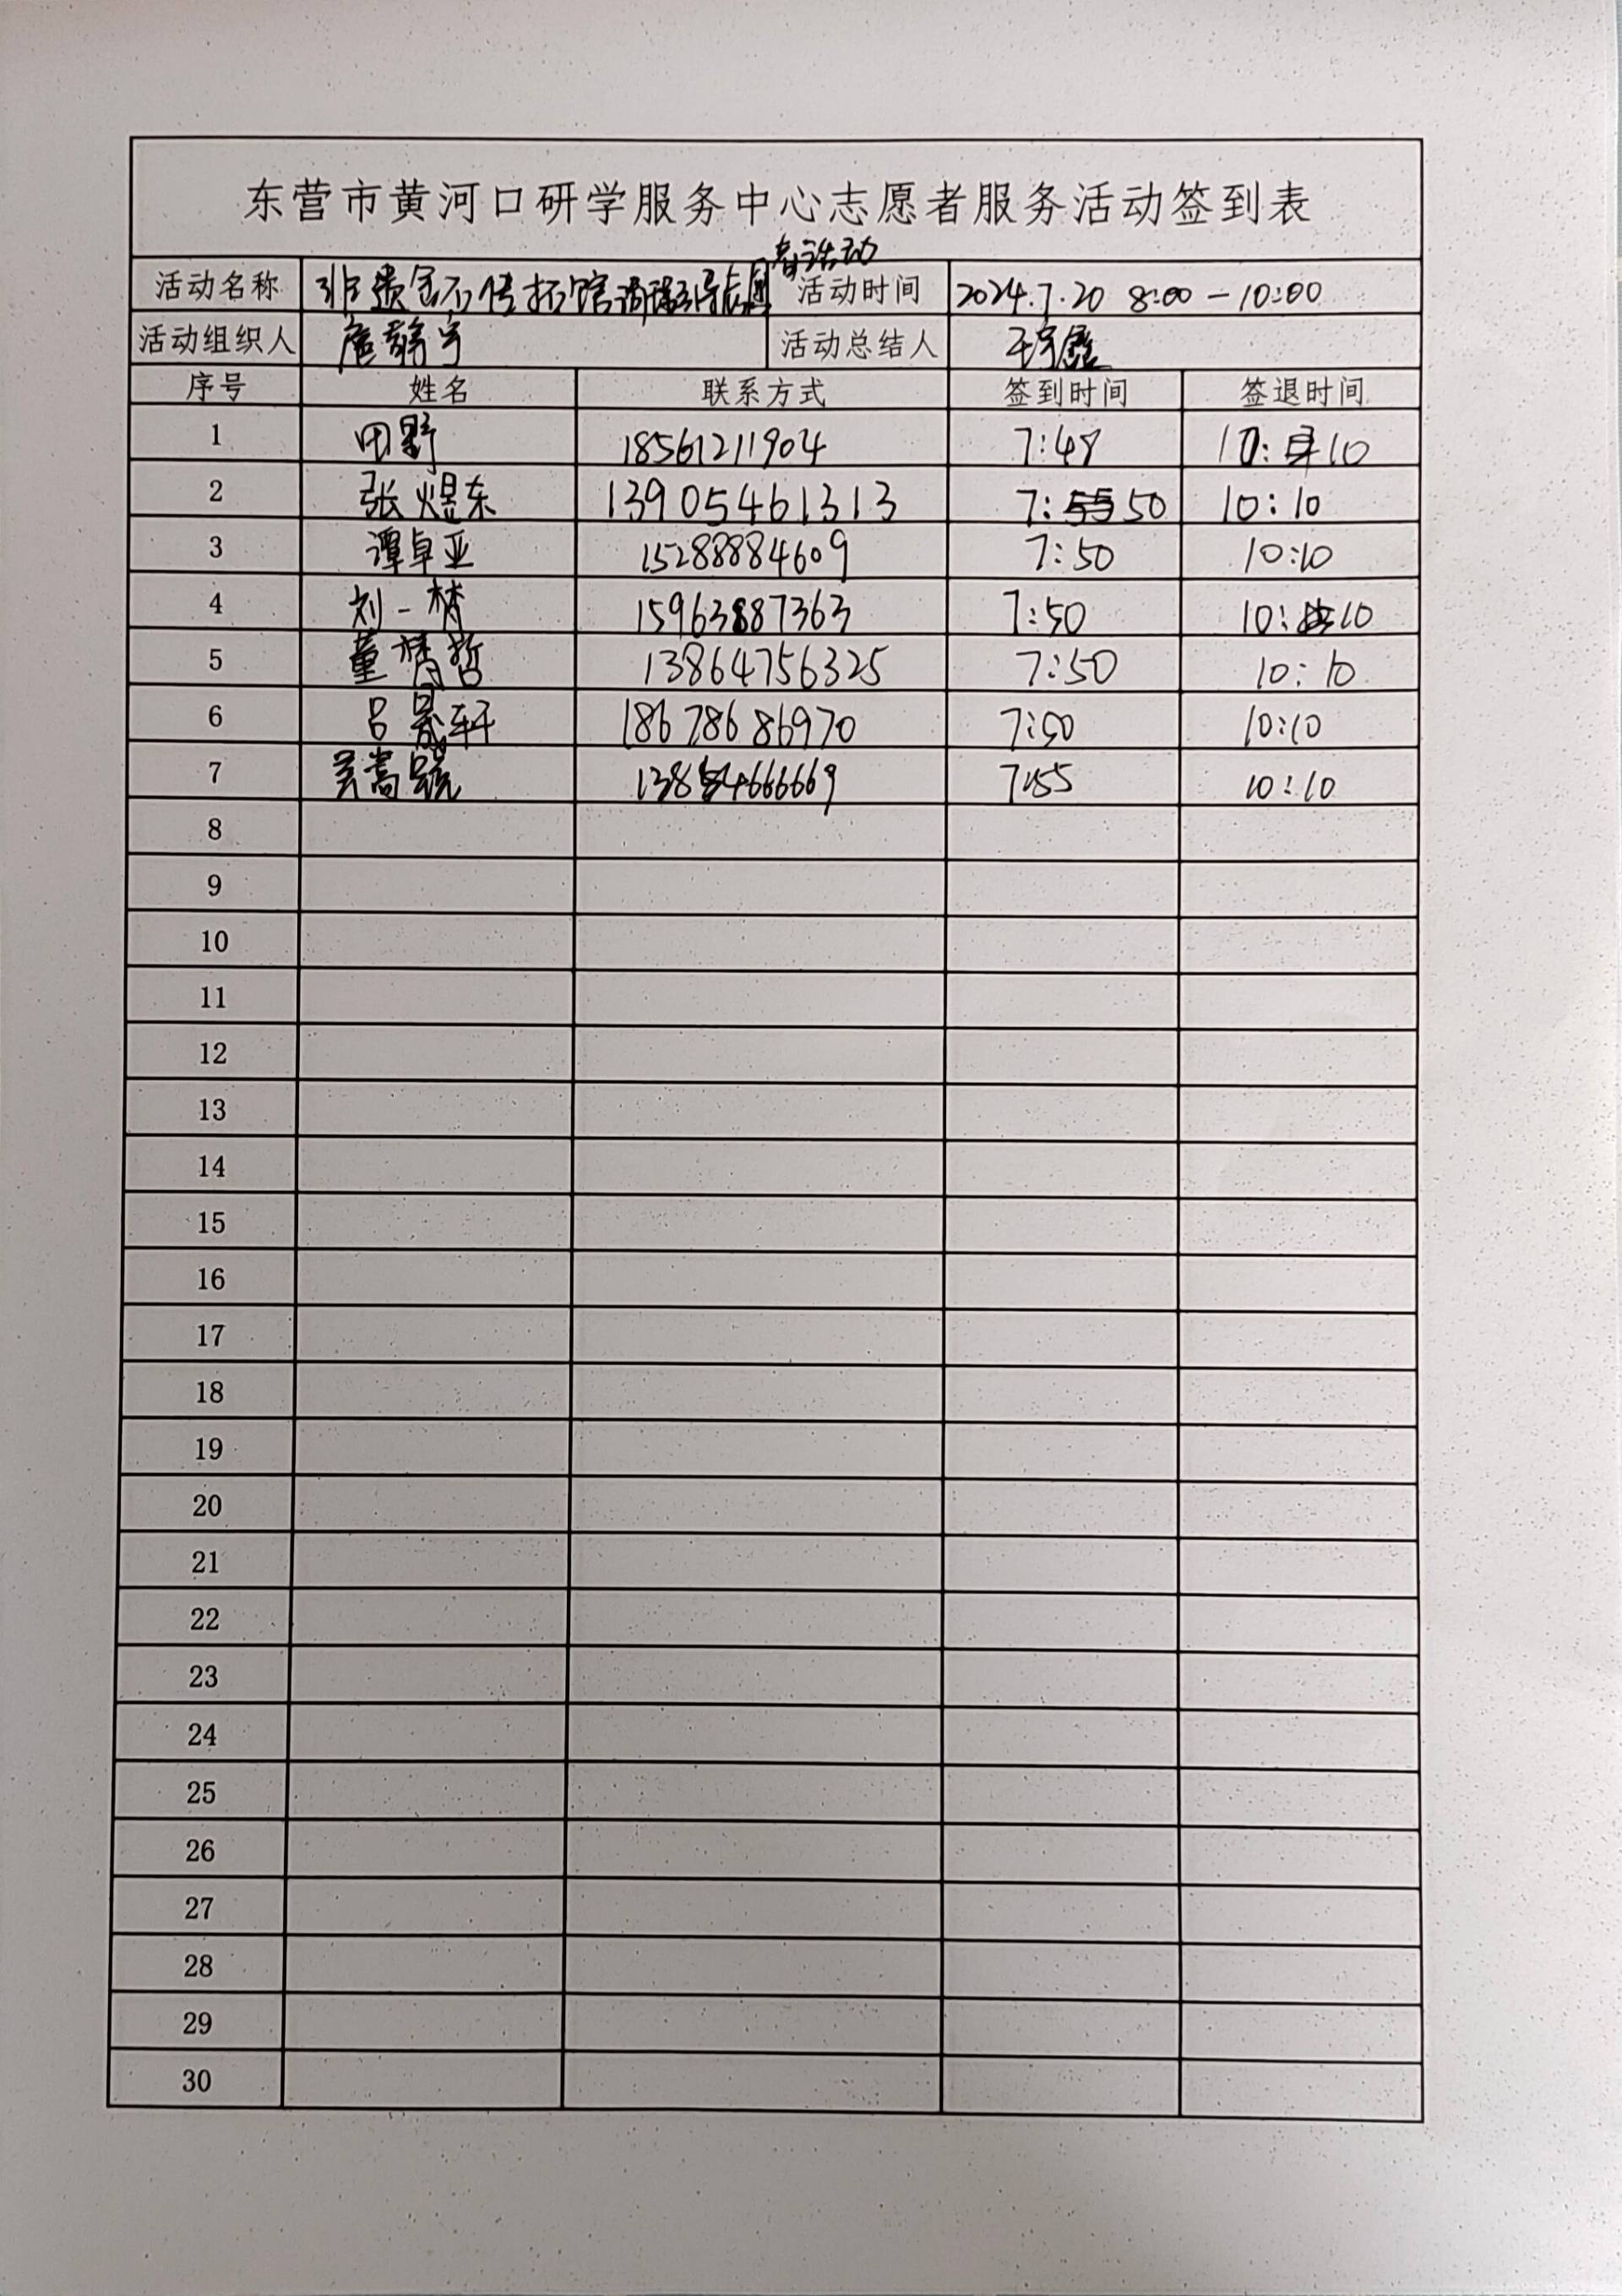 东营市黄河口研学服务中心志愿者服务活动签到表
者活动
活动名称 非遗 活动时间 2024.7.20 8:00-10:00
活动组织人 活动总结人
序号 姓名 联系方式 签到时间 签退时间
1 田野 18561211904 7:48 10:10
2 张煜东 13905461313 7:50 10:10
3 谭卓亚 15288884609 7:50 10:10
4 刘一梦 15963887363 7:50 10:10
5 董楕哲 13864756325 7:50 10:10
6 吕晟轩 18678686970 7:50 10:10
7 7:55 10:10
8
9
10
11
12
13
14
15
16
17
18
19
20
21
22
23
24
25
26
27
28
29
30